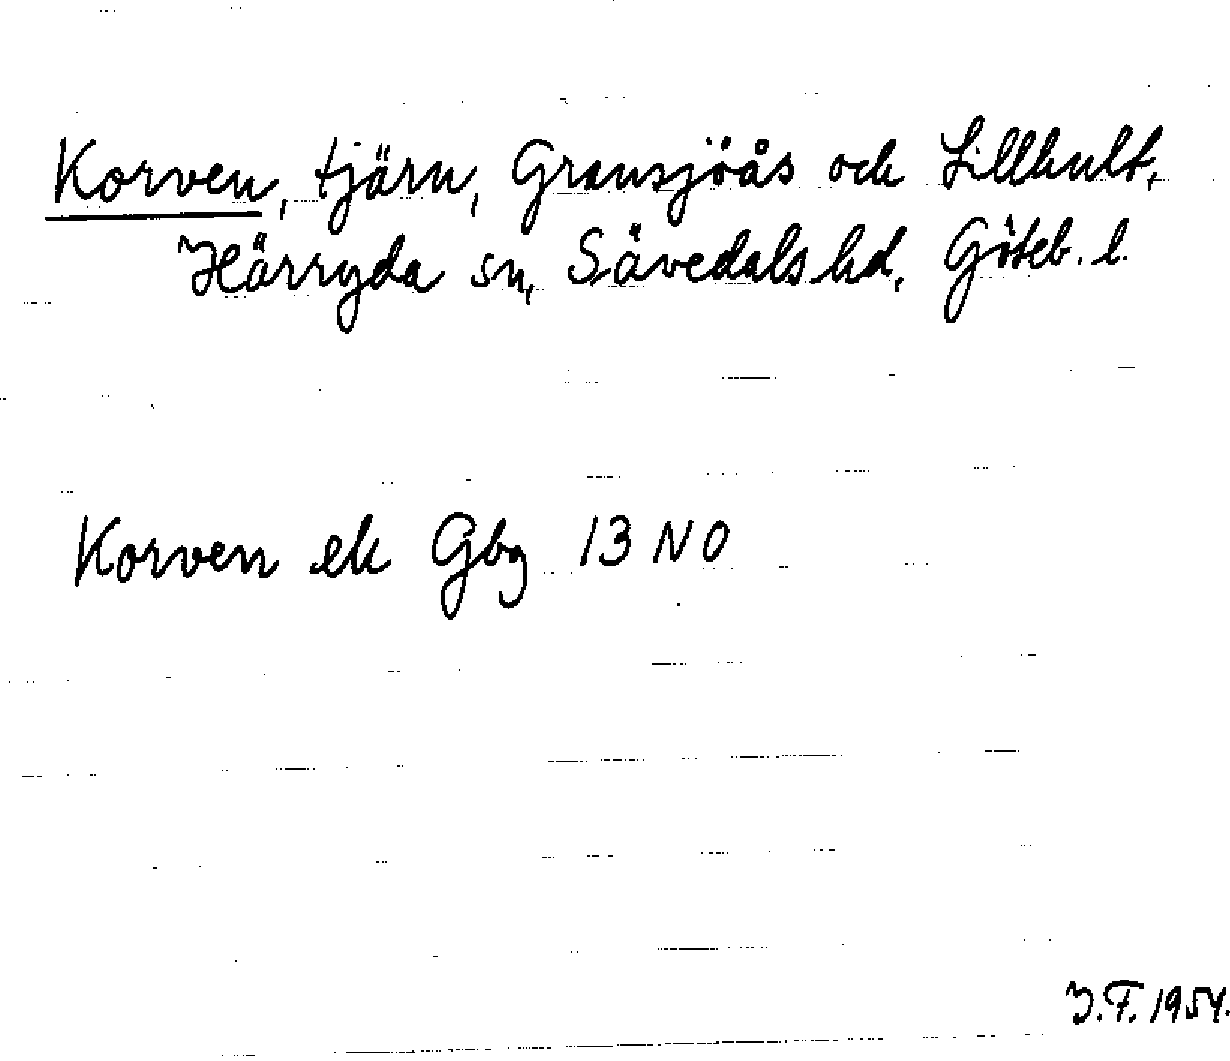 Korven, tjärn, Gransjöås och Lillhult,
Härryda sn, Sävedals hd, Göteb. l.
Korven ek Gbg 13 NO
I.F. 1954.